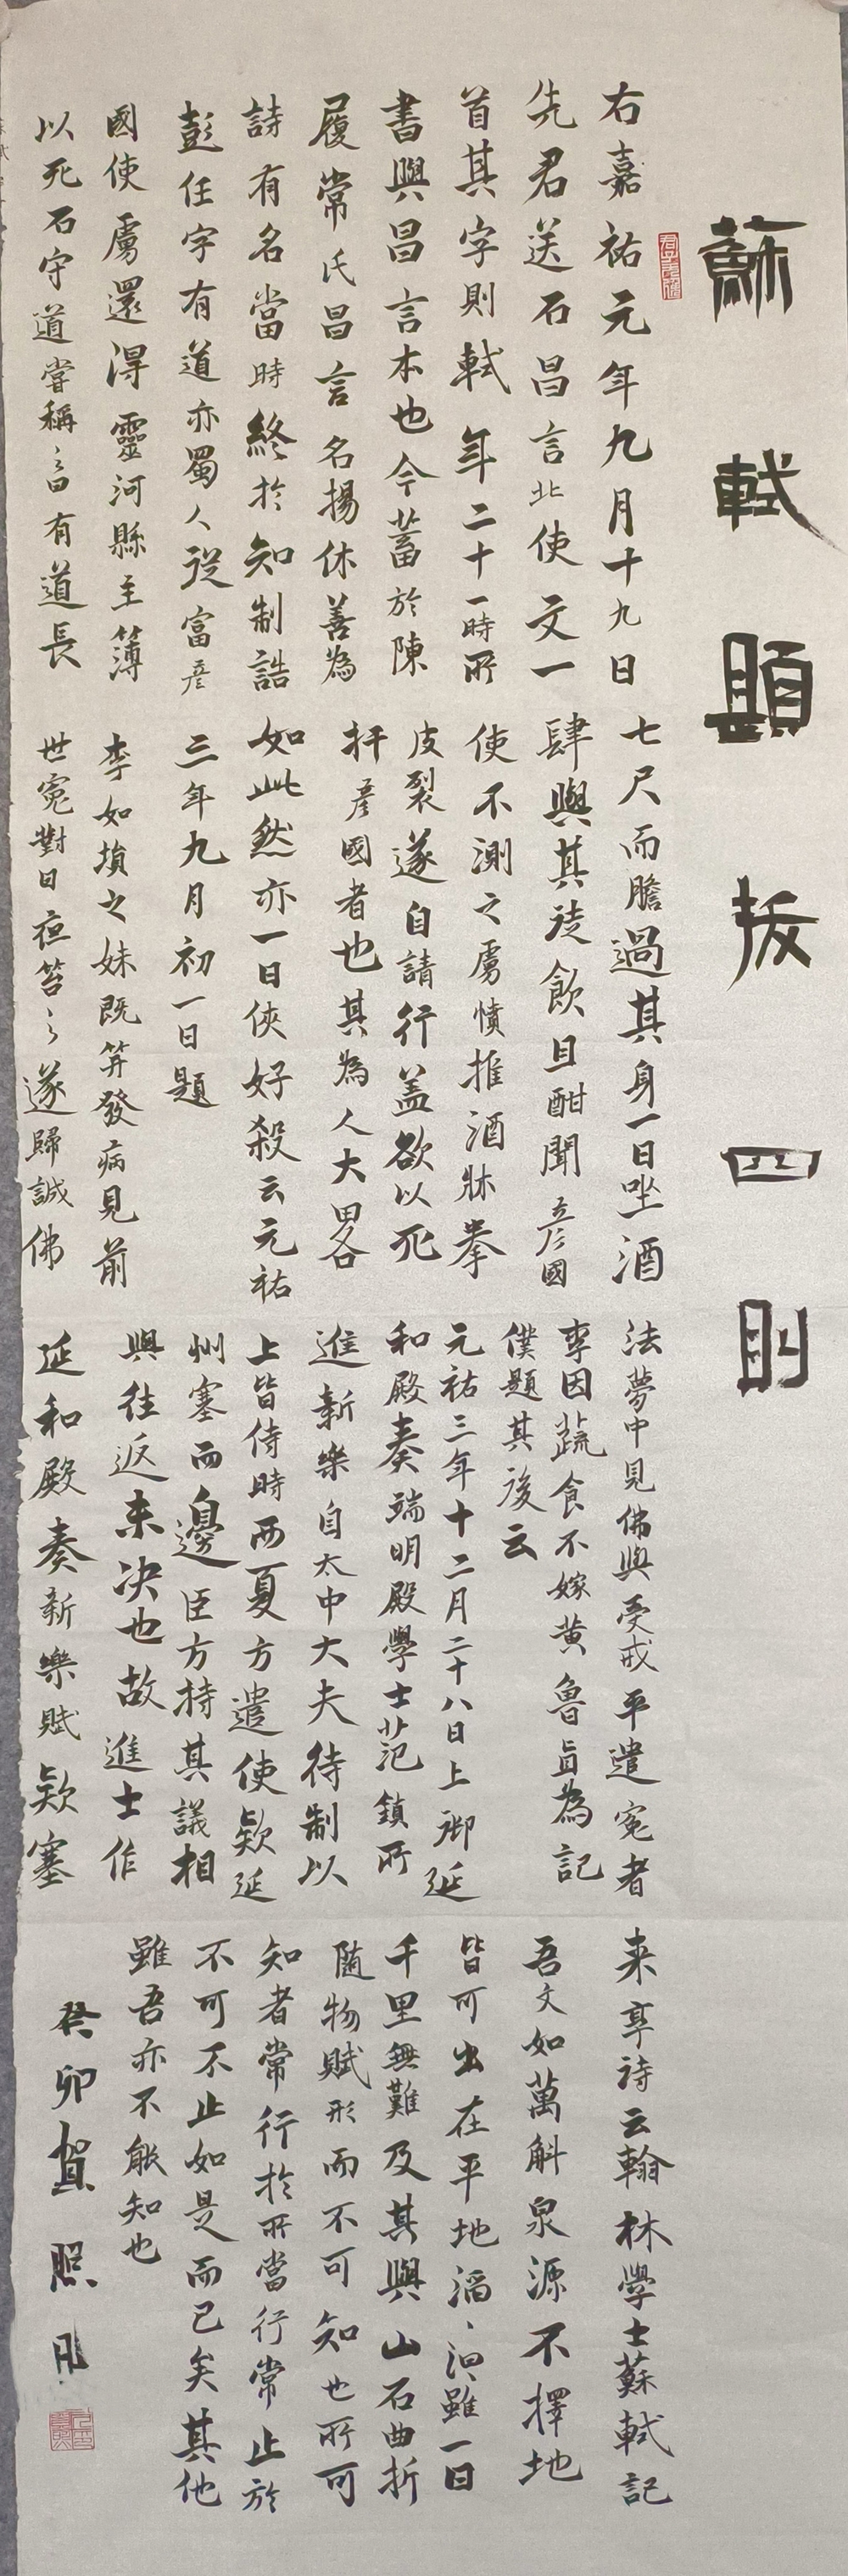 蘇軾題跋四則
右嘉祐元年九月十九日
先君送石昌言北使文一
首其字則軾年二十一時所
書與昌言本也今蓄於陳
履常氏昌言名揚休善為
詩有名當時終於知制誥
彭任字有道亦蜀人從富彥
國使虜還得靈河縣主簿
以死石守道嘗稱之曰有道長
七尺而膽過其身一日坐酒
肆與其徒飲且酣聞彥國
使不測之虜憤推酒牀拳
皮裂遂自請行蓋欲以死
扞彥國者也其為人大畧
如此然亦一日俠好殺云元祐
三年九月初一日題
李如塤之妹既笄發病見前
世寃對日夜笞之遂歸誠佛
法夢中見佛與受戒平遣寃者
李因蔬食不嫁黃魯直為記
僕題其後云
元祐三年十二月二十八日上御延
和殿奏端明殿學士范鎮所
進新樂自太中大夫待制以
上皆侍時西夏方遣使欵延
州塞而邊臣方持其議相
與往返未決也故進士作
延和殿奏新樂賦欵塞
来享詩云翰林學士蘇軾記
吾文如萬斛泉源不擇地
皆可出在平地滔滔汩雖一日
千里無難及其與山石曲折
隨物賦形而不可知也所可
知者常行於所當行常止於
不可不止如是而已矣其他
雖吾亦不能知也
癸卯賀照月